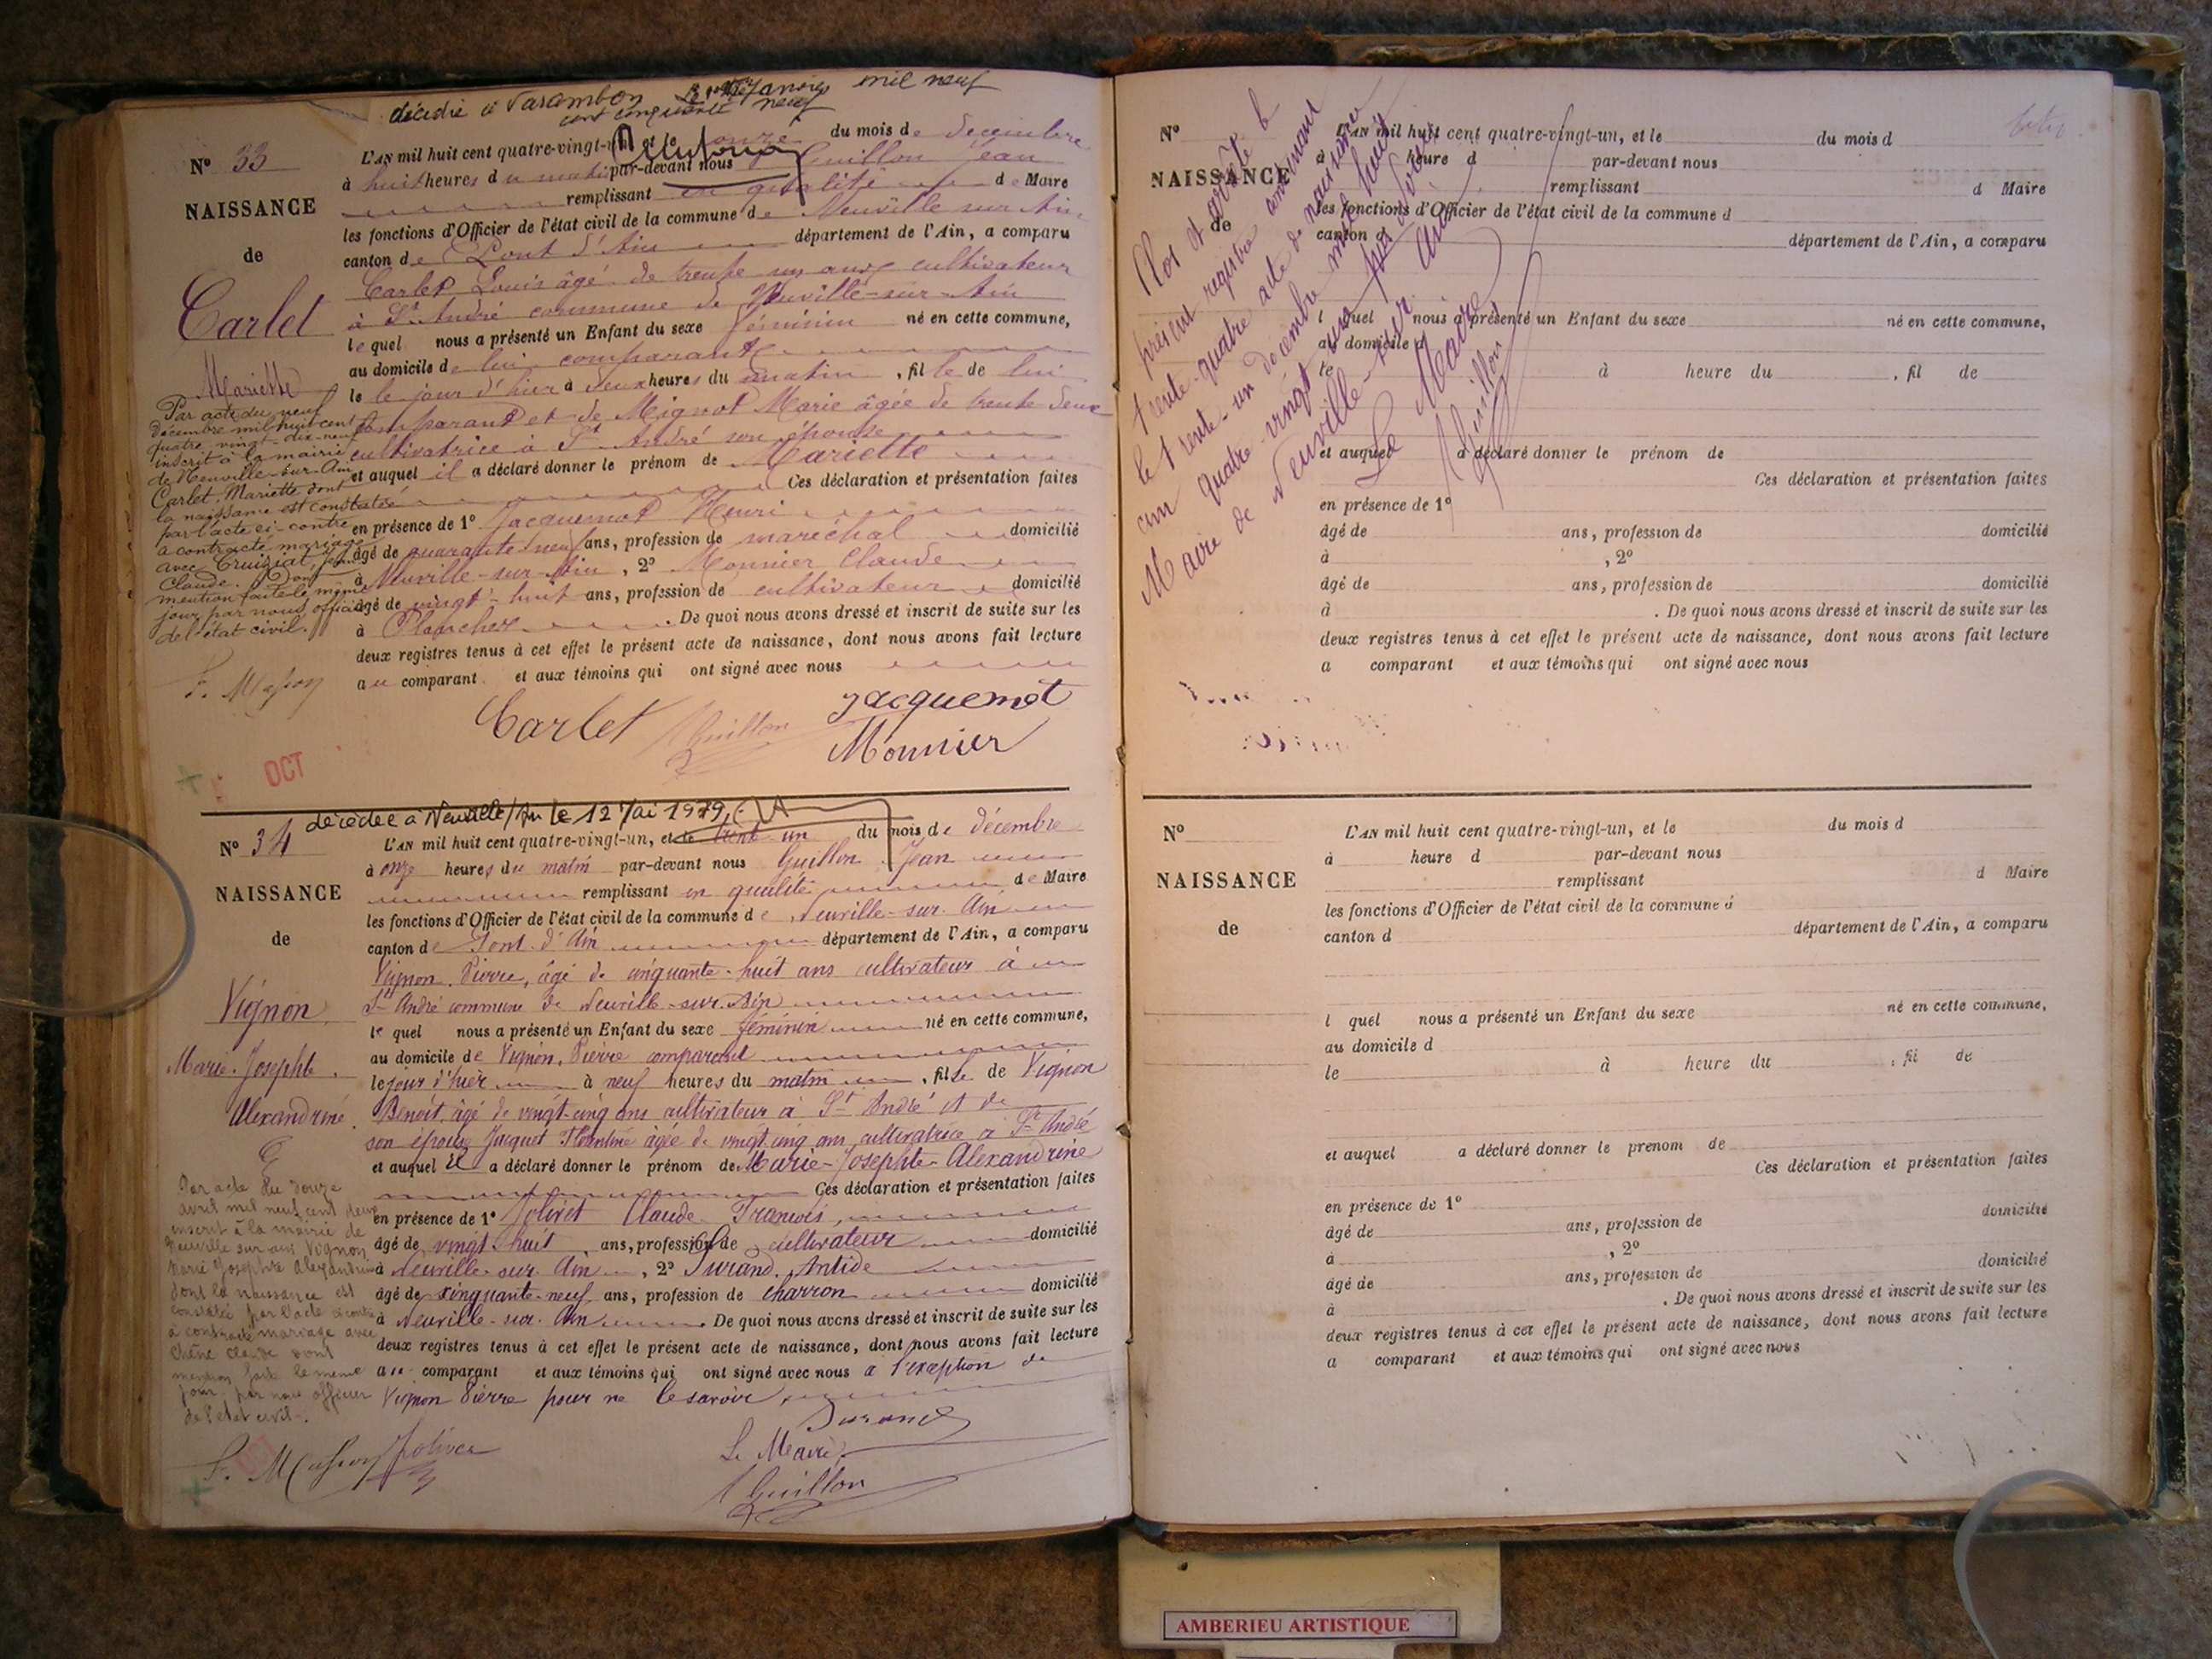 décédée à Varambon le janvier mil neuf
cent cinquante neuf
N° 33
L'AN mil huit cent quatre-vingt-un, et le onze du mois de decembre
à huit heures du matin par-devant nous Guillon Jean
NAISSANCE
remplissant en qualité de Maire
les fonctions d'Officier de l'état civil de la commune de Neuville sur Ain
de
canton de Pont d'Ain département de l'Ain, a comparu
Carlet Louis âgé de trente un ans cultivateur
Carlet
à St André commune de Neuville-sur-Ain
lequel nous a présenté un Enfant du sexe féminin né en cette commune,
au domicile de lui comparant
Mariette
le le jour d'hier à deux heures du matin, fille de lui
comparant et de Mignot Marie âgée de trente deux
cultivatrice à St André son épouse
et auquel il a déclaré donner le prénom de Mariette
Ces déclaration et présentation faites
en présence de 1° Jacquemot Henri
âgé de quarante neuf ans, profession de maréchal domicilié
à Neuville-sur-Ain, 2° Monnier Claude
âgé de vingt-huit ans, profession de cultivateur domicilié
à Planches. De quoi nous avons dressé et inscrit de suite sur les
deux registres tenus à cet effet le présent acte de naissance, dont nous avons fait lecture
au comparant et aux témoins qui ont signé avec nous
Par acte du neuf
décembre mil huit cent
quatre vingt-dix-neuf
inscrit à la mairie
de Neuville-sur-Ain
Carlet Mariette dont
la naissance est constatée
par l'acte ci-contre
a contracté mariage
avec Cruiziat, Jean
Claude. Dont
mention faite le même
jour par nous officier
de l'état civil.
Carlet Guillon Jacquemot
Monnier
OCT
décédée à Neuville/Ain le 12 Mai 1979
N° 34
L'AN mil huit cent quatre-vingt-un, et le trent un du mois de décembre
à onze heures du matin par-devant nous Guillon Jean
NAISSANCE
remplissant en qualité de Maire
les fonctions d'Officier de l'état civil de la commune de Neuville-sur-Ain
de
canton de Pont d'Ain département de l'Ain, a comparu
Vignon Pierre, âgé de cinquante-huit ans cultivateur à
Vignon
St André commune de Neuville-sur-Ain
lequel nous a présenté un Enfant du sexe féminin né en cette commune,
au domicile de Vignon, Pierre comparant
Marie-Josephte
le jour d'hier à neuf heures du matin, fille de Vignon
Alexandrine
Benoit, âgé de vingt-cinq ans cultivateur à St André et de
son épouse Jacquet âgée de vingt cinq ans cultivatrice à St André
et auquel il a déclaré donner le prénom de Marie-Josephte-Alexandrine
Ces déclaration et présentation faites
en présence de 1° Jolivet Claude François,
âgé de vingt huit ans, profession de cultivateur domicilié
à Neuville-sur-Ain, 2° Durand Antide
âgé de cinquante-neuf ans, profession de charron domicilié
à Neuville-sur-Ain. De quoi nous avons dressé et inscrit de suite sur les
deux registres tenus à cet effet le présent acte de naissance, dont nous avons fait lecture
au comparant et aux témoins qui ont signé avec nous a l'exception de
Vignon Pierre pour ne le savoir
Par acte du douze
avril mil neuf cent deux
inscrit à la mairie de
Neuville sur ain Vignon
Marie Josephte Alexandrine
dont la naissance est
constatée par l'acte ci contre
à contracté mariage avec
Chêne Claude dont
mention faite le même
jour par nous officier
de l'état civil.
Durand
Jolivet
Le Maire
Guillon
N°
L'AN mil huit cent quatre-vingt-un, et le du mois d
à heure d par-devant nous
NAISSANCE
remplissant d Maire
les fonctions d'Officier de l'état civil de la commune d
de
canton d département de l'Ain, a comparu
l quel nous a présenté un Enfant du sexe né en cette commune,
au domicile d
le à heure du , fil de
et auquel a déclaré donner le prénom de
Ces déclaration et présentation faites
en présence de 1°
âgé de ans, profession de domicilié
à , 2°
âgé de ans, profession de domicilié
à . De quoi nous avons dressé et inscrit de suite sur les
deux registres tenus à cet effet le présent acte de naissance, dont nous avons fait lecture
a comparant et aux témoins qui ont signé avec nous
Clos et arrêté le
présent registre contenant
trente-quatre acte de naissance
le trente-un décembre mil huit
cent quatre-vingt-un par nous
Maire de Neuville-sur-Ain
Le Maire
Guillon
N°
L'AN mil huit cent quatre-vingt-un, et le du mois d
à heure d par-devant nous
NAISSANCE
remplissant d Maire
les fonctions d'Officier de l'état civil de la commune d
de
canton d département de l'Ain, a comparu
l quel nous a présenté un Enfant du sexe né en cette commune,
au domicile d
le à heure du , fil de
et auquel a déclaré donner le prenom de
Ces déclaration et présentation faites
en présence de 1°
âgé de ans, profession de domicilié
à , 2°
âgé de ans, profession de domicilié
à . De quoi nous avons dressé et inscrit de suite sur les
deux registres tenus à cet effet le présent acte de naissance, dont nous avons fait lecture
a comparant et aux témoins qui ont signé avec nous
AMBERIEU ARTISTIQUE